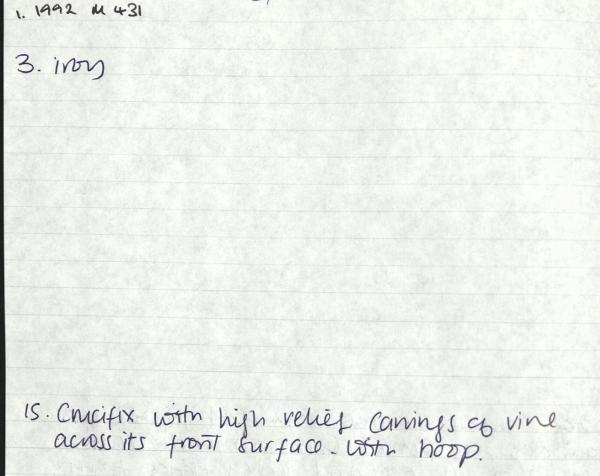 1. 1992 M 431
3. ivory
15. Crucifix with high relief carvings of vine
across its front surface. With hoop.